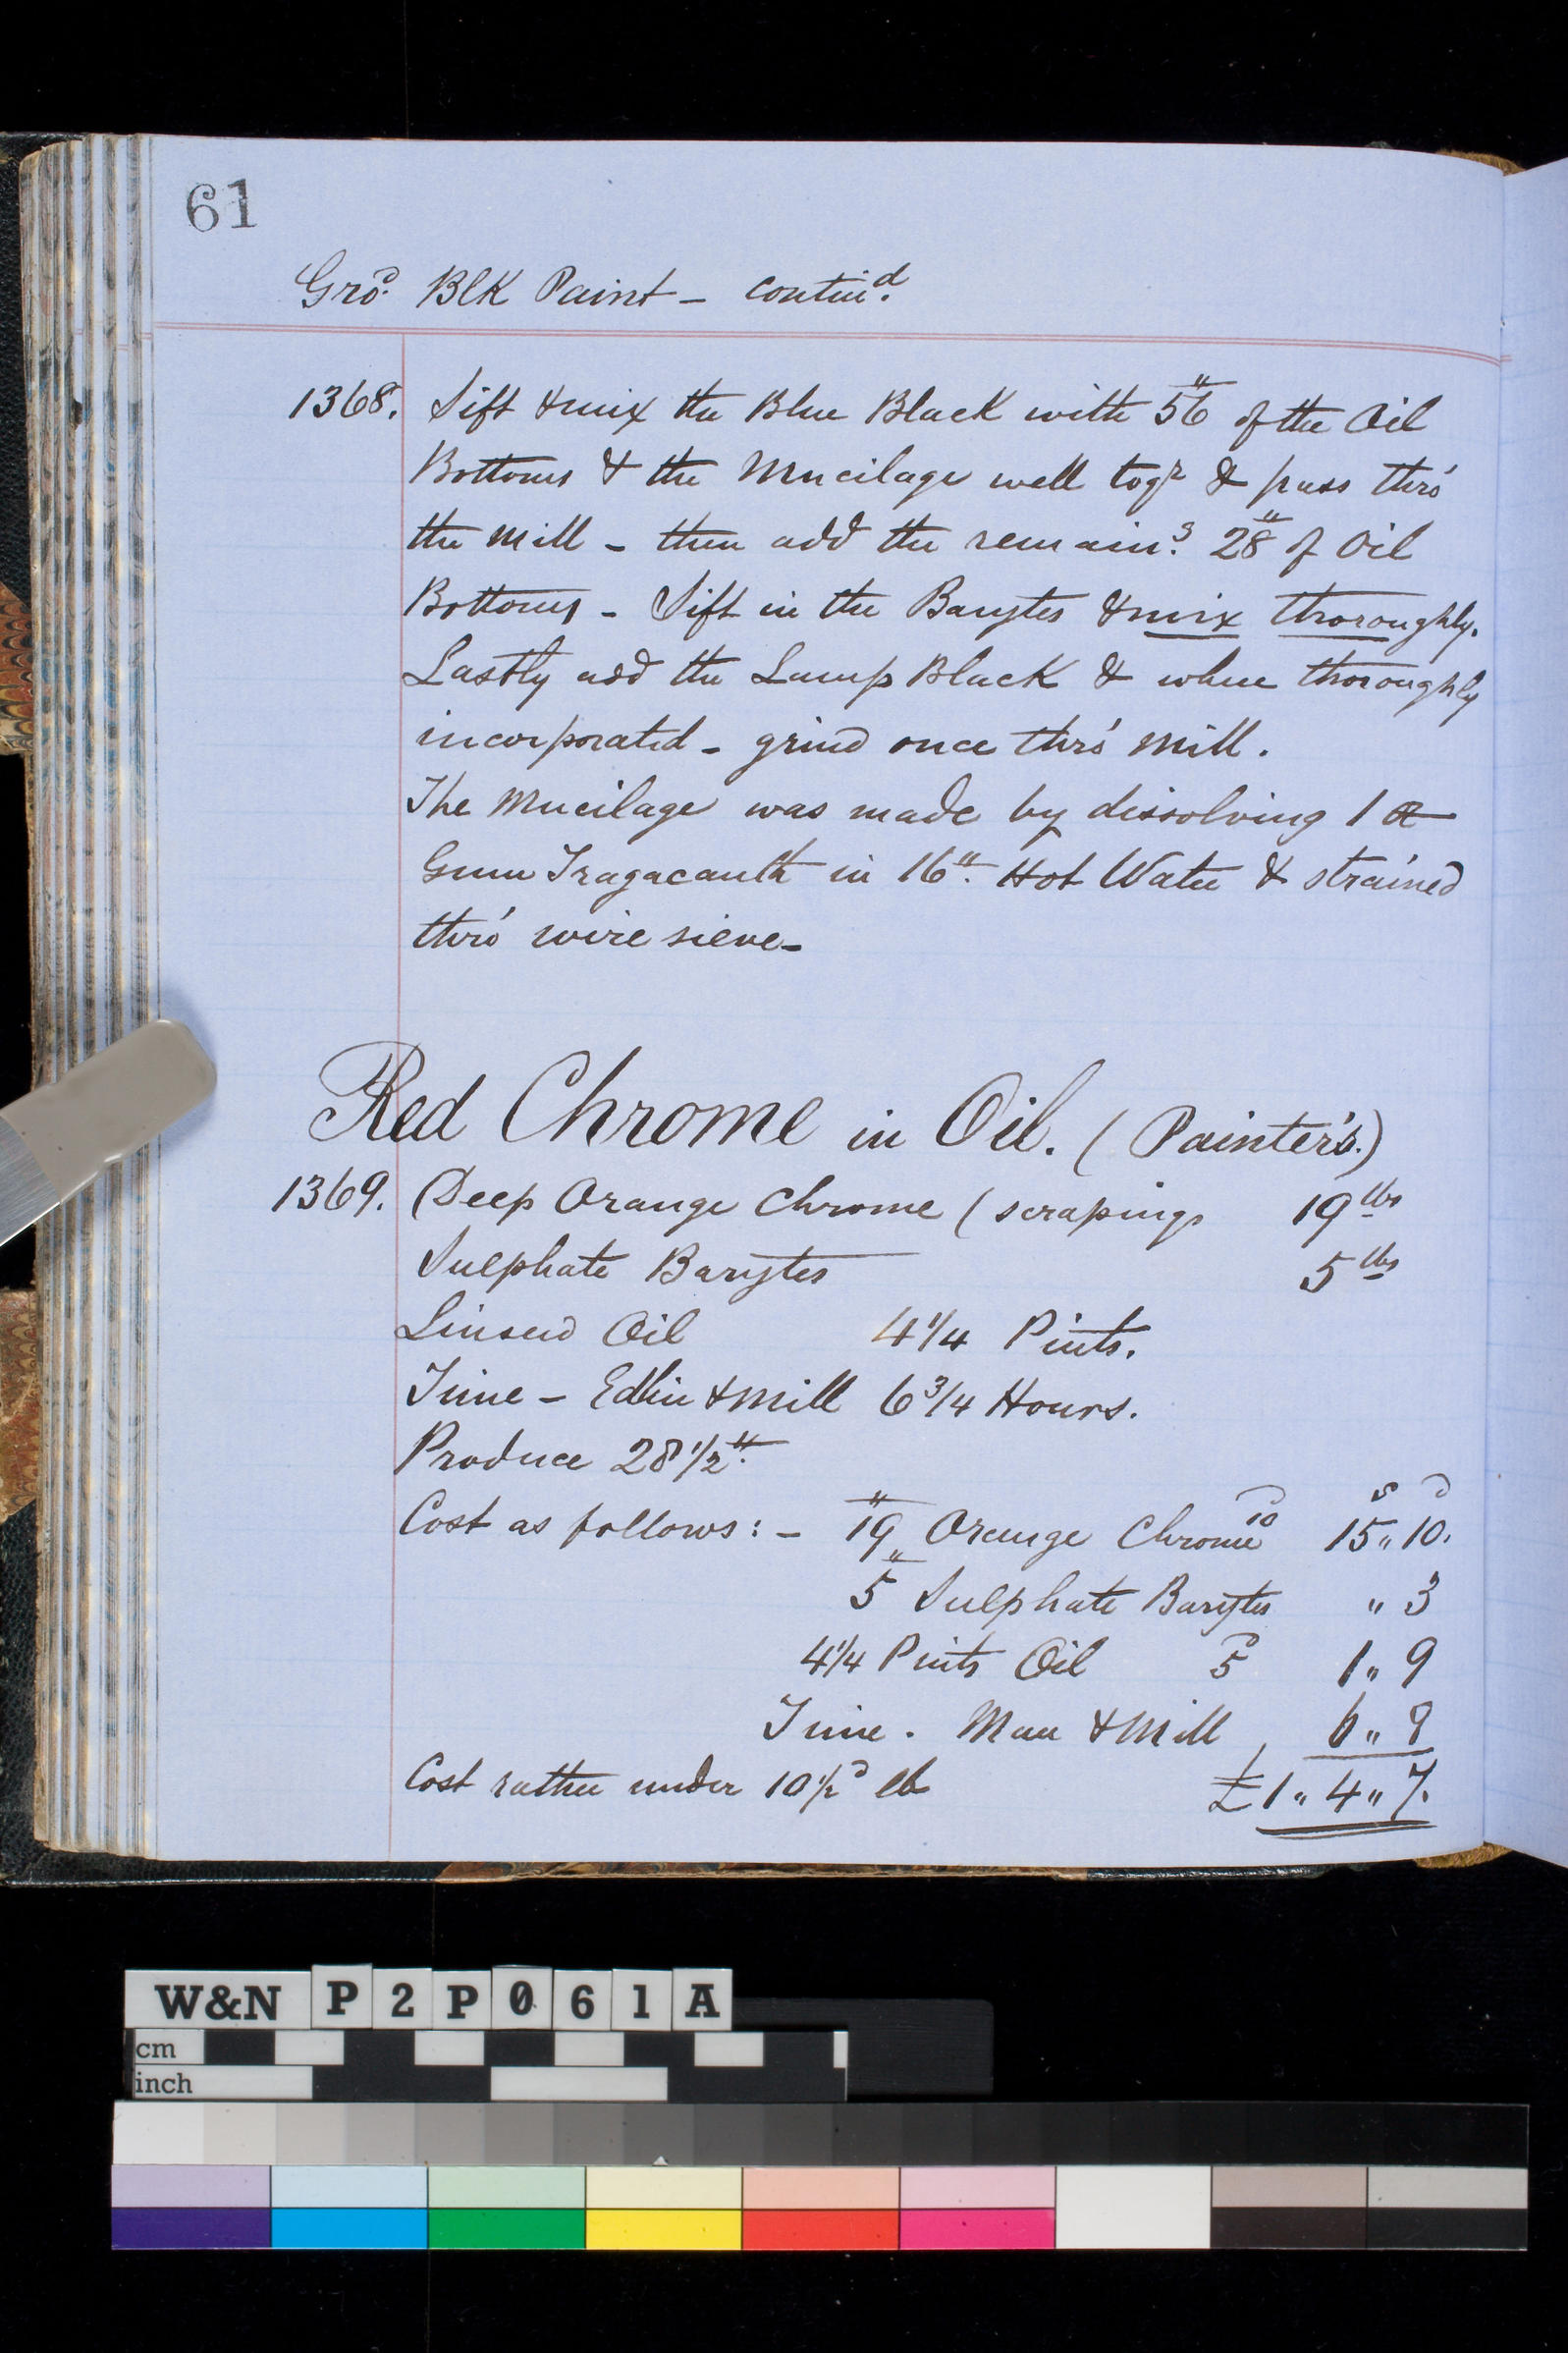 61
Gro.d Blk Paint – contin.d
1368. Sift & mix the Blue Black with 56" of the Oil
Bottoms & the Mucilage well tog.r & pass thro'
the mill – then add the remain.g 28" of Oil
Bottoms – Sift in the Barytes & mix thoroughly.
Lastly add the Lamp Black & when thoroughly
incorporated – grind once thro' mill.
The Mucilage was made by dissolving 1 lb
Gum Tragacanth in 16" Hot Water & strained
thro' wire sieve –
Red Chrome in Oil. (Painter's.)
1369. Deep Orange Chrome (scrapings 19 lbs
Sulphate Barytes 5 lbs
Linseed Oil 4 1/4 Pints.
Time – Edlin & Mill 6 3/4 Hours.
Produce 28 1/2".
s d
Cost as follows: – 19" Orange Chrome 10d 15 " 10.
5" Sulphate Barytes " 3
4 1/4 Pints Oil 5d 1 " 9
Time. Man & Mill 6 " 9
Cost rather under 10 1/2d lb £1 " 4 " 7.
W&N P2P061A
cm
inch